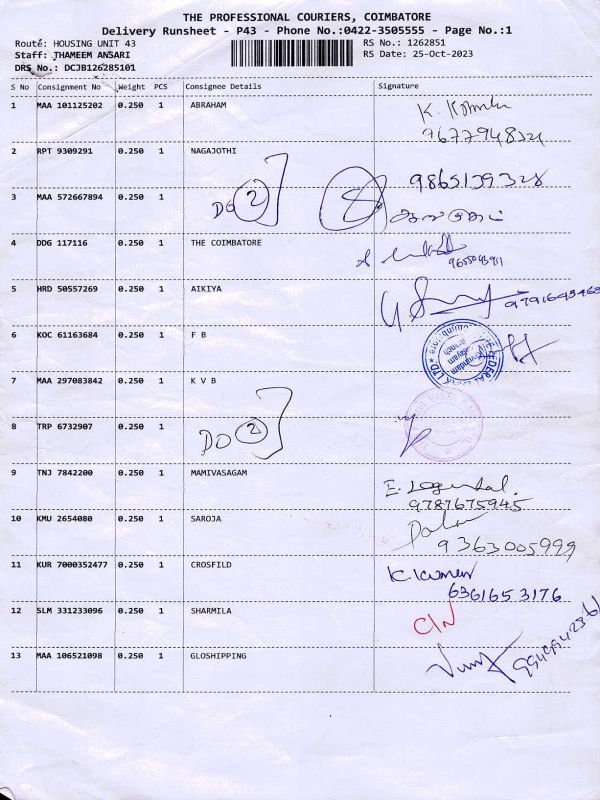 THE PROFESSIONAL COURIERS, COIMBATORE
Delivery Runsheet - P43 - Phone No.:0422-3505555 - Page No.:1
Route: HOUSING UNIT 43 RS No.: 1262851
Staff: THAMEEM ANSARI RS Date: 25-Oct-2023
DRS No.: DCJB126285101
S No Consignment No Weight PCS Consignee Details Signature
1 MAA 101125202 0.250 1 ABRAHAM K.
9677948321
2 RPT 9309291 0.250 1 NAGAJOTHI
9865139328
3 MAA 572667894 0.250 1 DO 2
4 DDG 117116 0.250 1 THE COIMBATORE
5 HRD 50557269 0.250 1 AIKIYA
6 KOC 61163684 0.250 1 F B
FEDERAL LTD Coimbatore
7 MAA 297083842 0.250 1 K V B
8 TRP 6732907 0.250 1 DO 2
9 TNJ 7842200 0.250 1 MAMIVASAGAM E.
9787675945
10 KMU 2654080 0.250 1 SAROJA
9363005999
11 KUR 7000352477 0.250 1 CROSFILD K. Kumar
6361653176
12 SLM 331233096 0.250 1 SHARMILA C/N
13 MAA 106521098 0.250 1 GLOSHIPPING